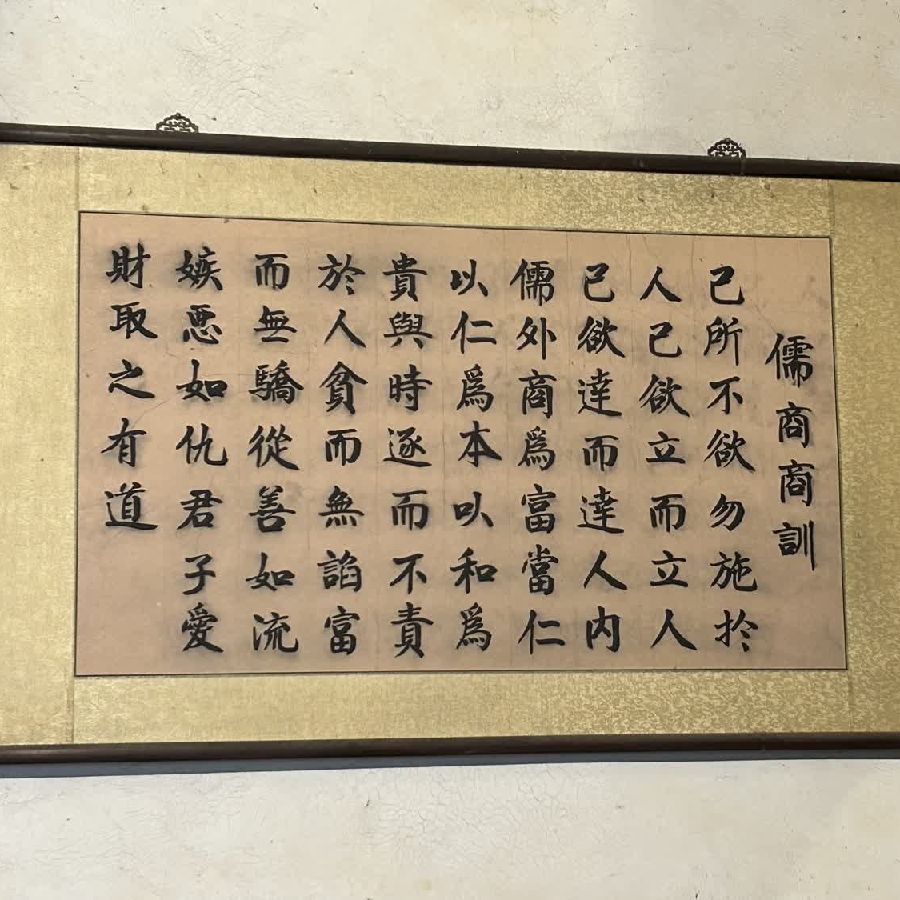 儒商商訓
己所不欲勿施於
人己欲立而立人
己欲達而達人内
儒外商爲富當仁
以仁爲本以和爲
貴與時逐而不責
於人貧而無諂富
而無驕從善如流
嫉惡如仇君子愛
財取之有道